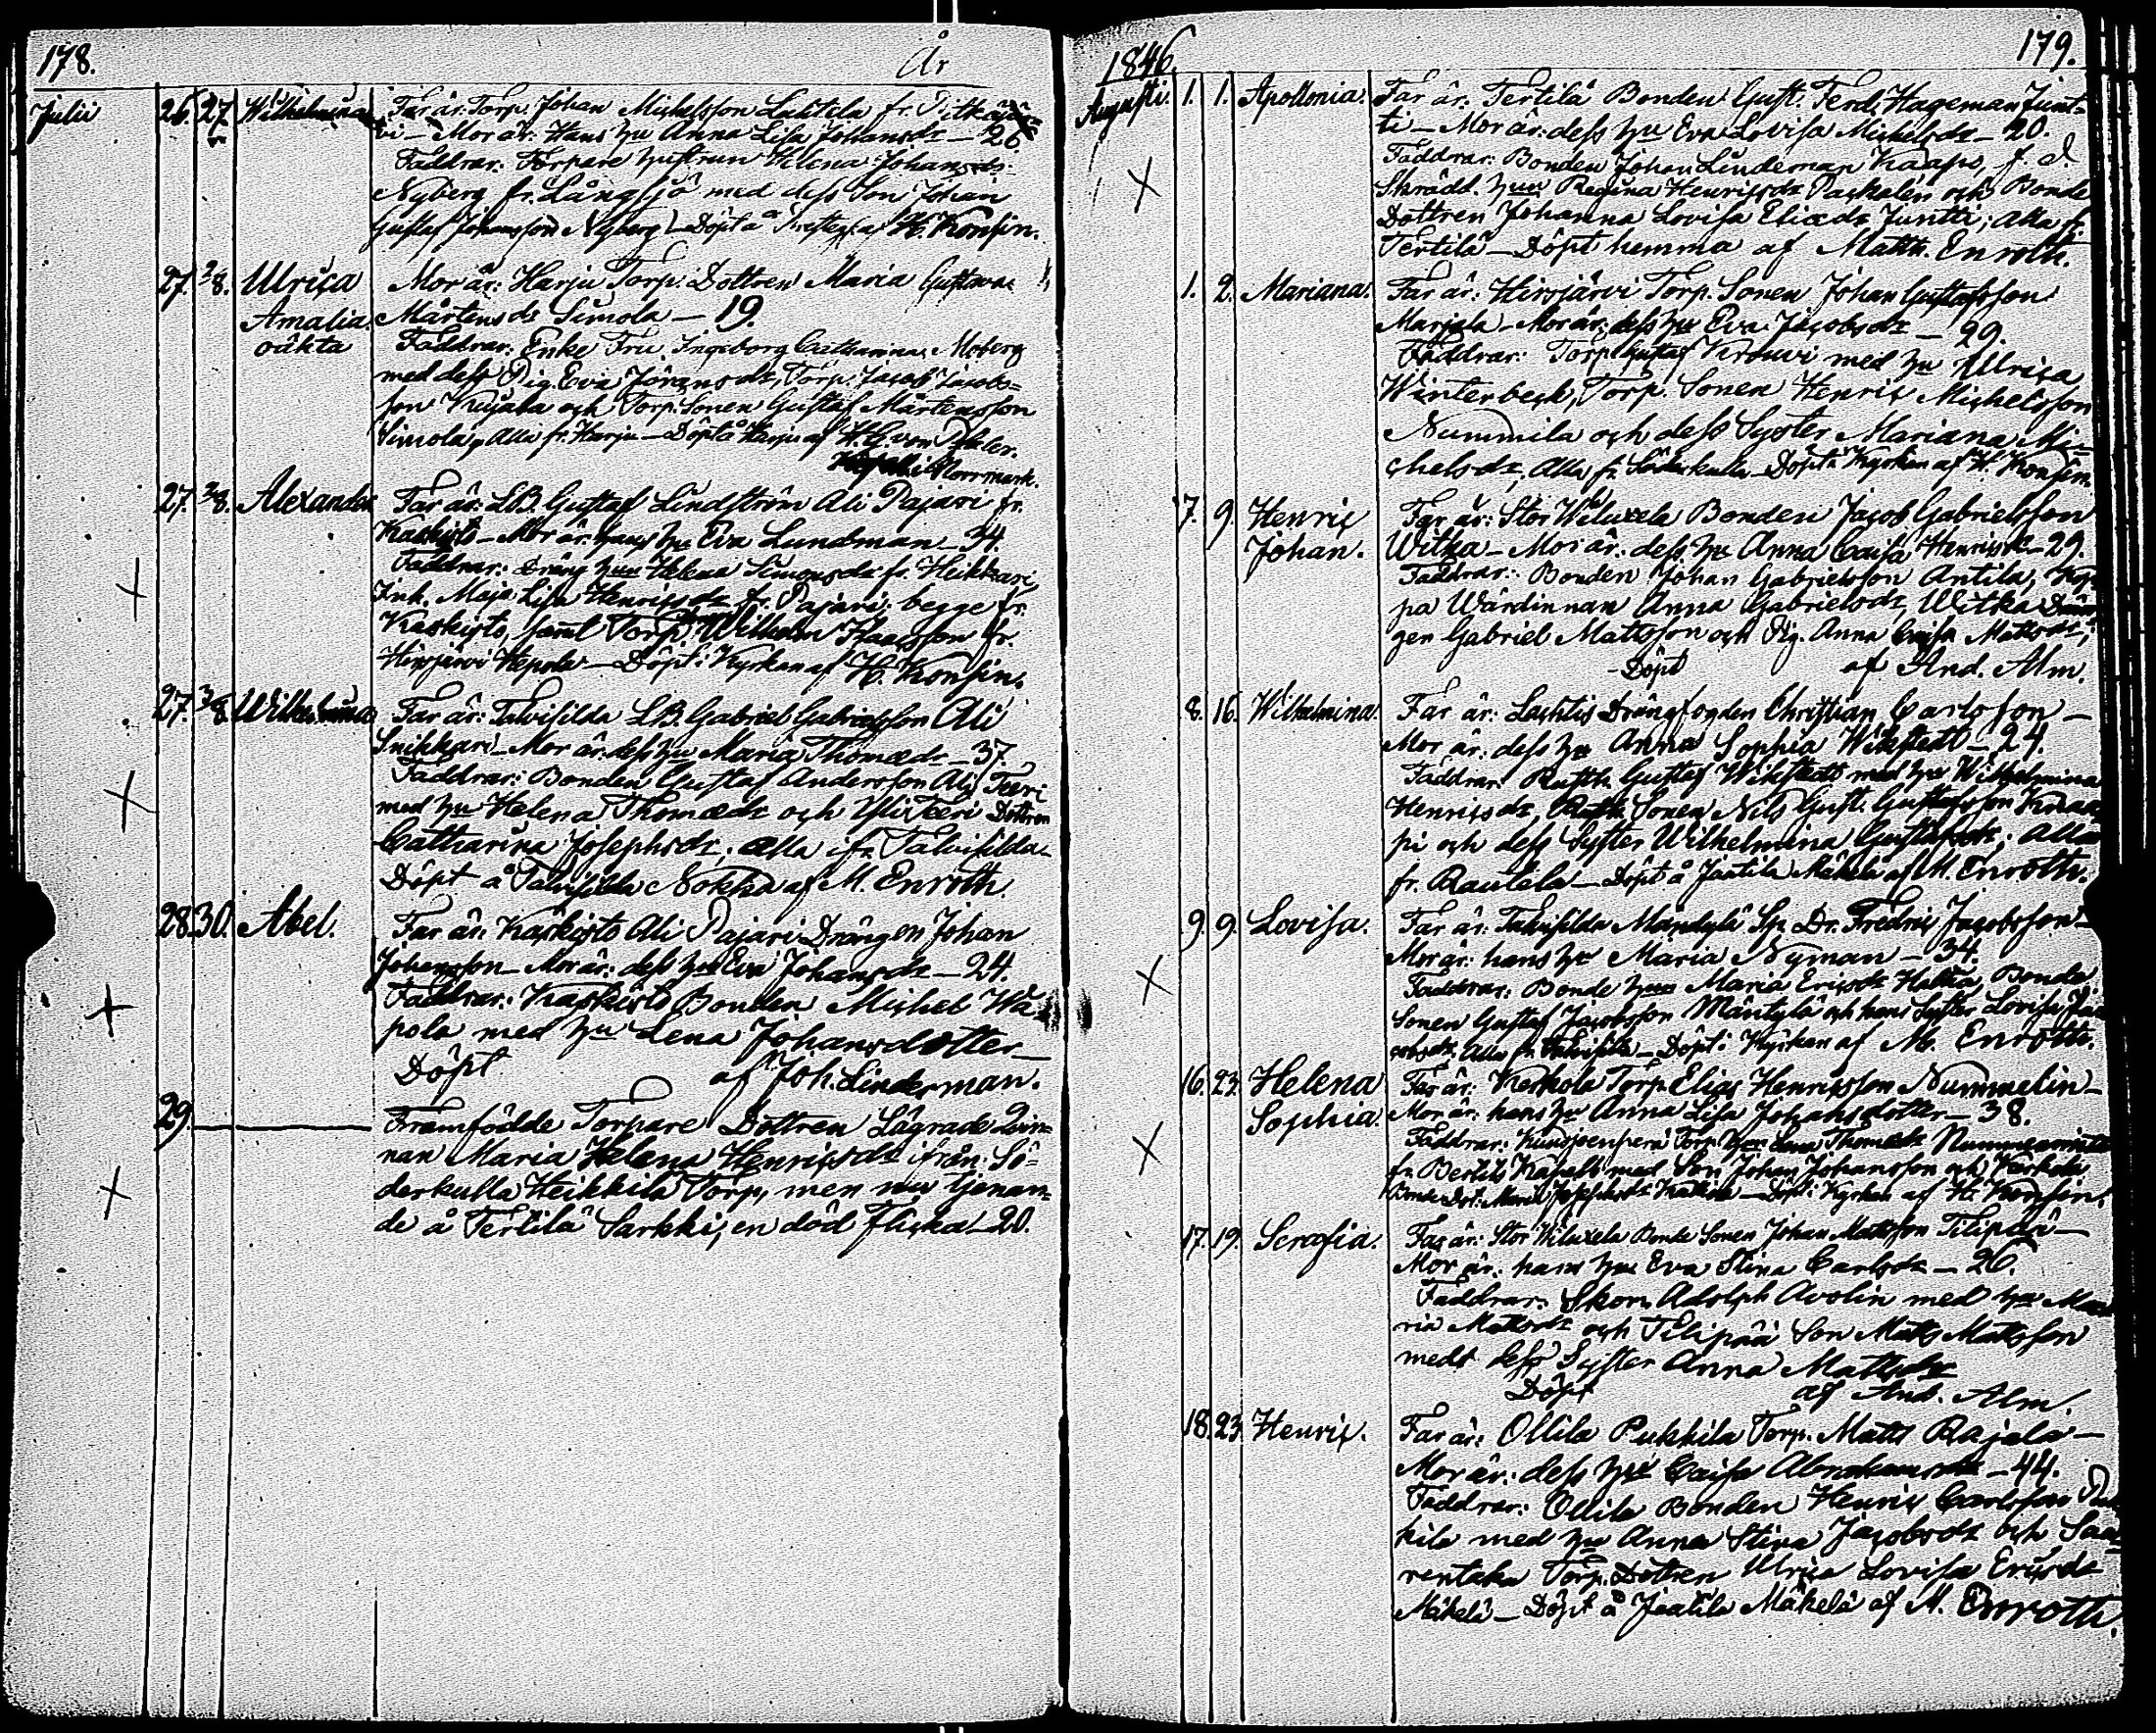 178.
År
Julii 26. 27. Wilhelmina Far är: Torp. Johan Michelsson Lahtila fr. Pitkäjär=
vi – Mor är: Hans hu Anna Lisa Johansdr – 26.
Faddrar: Torpare hustrun Helena Johansdr
Nyberg fr. Långsjö med dess Son Johan
Gustaf Johansson Nyberg – Döpt å af H. Konsin.
27. 2/8. Ulrica Mor är: Harju Torp. Dottren Maria Gustava
Amalia. Mårtensdr Simola – 19.
oäkta Faddrar: Enke Fru Ingeborg Catharina Moberg
med dess Pig. Eva Jöransdr, Torp. Jacob Jacobs=
son Kujala och Torp. Sonen Gustaf Mårtensson
Simola, Alla fr. Harju – Döpt å Harju af H. G. von
Norrmark.
27. 2/8. Alexander Far är: LB. Gustaf Lindström Ali Pajari fr.
Kaskisto – Mor är: hans hu Eva Lundman – 34.
Faddrar: Dräng hun Helena Simonsdr fr. Heikkari,
Inh. Maja Lisa Henricsdr fr. Pajari, begge fr.
Kaskisto, samt Torp. Wilhelm Isaacsson fr.
Hirsjärvi Hepola – Döpt i Kyrkan af H. Konsin.
27. 3/8. Wilhelmina Far är: Talvisilda LB. Gabriel Gabrielsson Ali
Snikkari – Mor är: dess hu Maria Thomædr – 37.
Faddrar: Bonden Gustaf Andersson Ali Teeri
med hu Helena Thomædr och Yli Teeri Dottren
Catharina Josephsdr; alla ifr. Talvisilda –
Döpt å Talvisilda Nokka af M. Enroth.
28. 30. Abel. Far är: Kaskisto Ali Pajari Drängen Johan
Johansson – Mor är: dess hu Eva Johansdr – 24.
Faddrar: Kaskisto Bonden Michel Wä=
pola med hu Lena Johansdotter –
Döpt af Joh. Linderman.
29. Framfödde Torpare Dottren Lägrade Qvin=
nan Maria Helena Henricsdr ifrån Sö=
derkulla Heikkilä Torp, men nu Genan=
de å Tertilä Sarkki, en död Flicka – 20.
1846.
179.
Augusti. 1. 1. Apollonia. Far är: Tertilä Bonden Gust. Ferd. Hageman Junt=
ti – Mor är: dess hu Eva Lovisa Michelsdr – 20.
Faddrar: Bonden Johan Lindeman Kaapo, f. d.
Skrädd. hun Regina Henricsdr Paskalin och Bonde
Dottren Johanna Lovisa Eliædr Juntti; Alla fr.
Tertilä – Döpt hemma af Matth. Enroth.
1. 2. Mariana. Far är: Hirsjärvi Torp. Sonen Johan Gustafsson
Marjala – Mor är: dess hu Eva Jacobsdr – 29.
Faddrar: Torp. Gustaf Krouvi med hu Ulrica
Winterbeck, Torp. Sonen Henric Michelsson
Nummila och dess Syster Mariana Mi=
chelsdr, Alla fr. Söderkulla – Döpt i Kyrkan af H. Konsin.
7. 9. Henric Far är: Stor Wiluxela Bonden Jacob Gabrielsson
Johan. Witka – Mor är: dess hu Anna Caisa Henricsdr – 29.
Faddrar: Bonden Johan Gabrielsson Antila,
pa Wärdinnan Anna Gabrielsdr, Witka Drän
gen Gabriel Matsson och Pig. Anna Caisa Matsdr;
Döpt af And. Alm.
8. 16. Wilhelmina. Far är: Lahtis Drängfogden Christian Carlsson –
Mor är: dess hu Anna Sophia Wikstedt – 24.
Faddrar: Rusth. Gustaf Wikstedt med hu Wilhelmina
Henricsdr, Rusth. Sonen Nils Gust. Gustafsson
pi och dess Syster Wilhelmina Gustafsdr; Alla
fr. Rautela – Döpt å Jaatila Mäkelä af M. Enroth.
9. 9. Lovisa. Far är: Talvisilda Mäntylä Sp. Dr. Fredric Jacobsson –
Mor är: hans hu Maria Nyman – 34.
Faddrar: Bonde hun Maria Ericsdr Hakka, Bonde
Sonen Gustaf Jacobsson Mäntylä och hans Syster Lovisa Ja
cobsdr, Alla fr. Talvisilda – Döpt i Kyrkan af M. Enroth.
16. 23. Helena Far är: Kerkola Torp. Elias Henricsson Nummelin –
Sophia. Mor är: hans hu Anna Lisa Johansdotter – 38.
Faddrar: Torp. hun Lena Thomædr
fr. Bertils Kapell med Son Johan Johansson och Kerkola
Bonde Dot. Maria Josephsdr – Döpt i Kyrkan af H. Konsin.
17. 19. Serafia. Far är: Stor Wiluxela Bonde Sonen Johan Matsson Filipää –
Mor är: hans hu Eva Stina Carlsdr – 26.
Faddrar: Skom. Adolph Avolin med hu Ma
ria Matsdr och Filipää Son Mats Matsson
medt dess Syster Anna Matsdr
Döpt af And. Alm.
18. 23. Henric. Far är: Ollila Pukkila Torp. Matts Rajala –
Mor är: dess hu Caisa Abrahamsdr – 44.
Faddrar: Ollila Bonden Henric Carlsson Puk
kila med hu Anna Stina Jacobsdr och Saa
rentaka Torp. Dottren Ulrica Lovisa Ericsdr
Mäkelä – Döpt å Jaatila Mäkelä af M. Enroth.